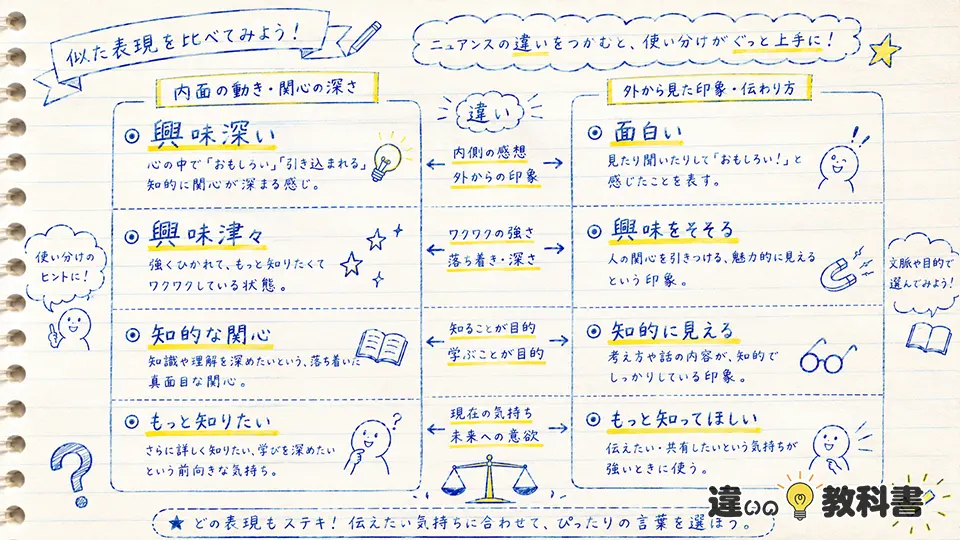 似た表現を比べてみよう!
ニュアンスの違いをつかむと、使い分けがぐっと上手に!
内面の動き・関心の深さ
興味深い
心の中で「おもしろい」「引き込まれる」
知的に関心が深まる感じ。
興味津々
強くひかれて、もっと知りたくて
ワクワクしている状態。
知的な関心
知識や理解を深めたいという、落ち着いた
真面目な関心。
もっと知りたい
さらに詳しく知りたい、学びを深めたい
という前向きな気持ち。
違い
内側の感想
外からの印象
ワクワクの強さ
落ち着き・深さ
知ることが目的
学ぶことが目的
現在の気持ち
未来への意欲
外から見た印象・伝わり方
面白い
見たり聞いたりして「おもしろい!」と
感じたことを表す。
興味をそそる
人の関心を引きつける、魅力的に見える
という印象。
知的に見える
考え方や話の内容が、知的で
しっかりしている印象。
もっと知ってほしい
伝えたい・共有したいという気持ちが
強いときに使う。
使い分けの
ヒントに!
文脈や目的で
選んでみよう!
★ どの表現もステキ! 伝えたい気持ちに合わせて、ぴったりの言葉を選ぼう。
違いの教科書